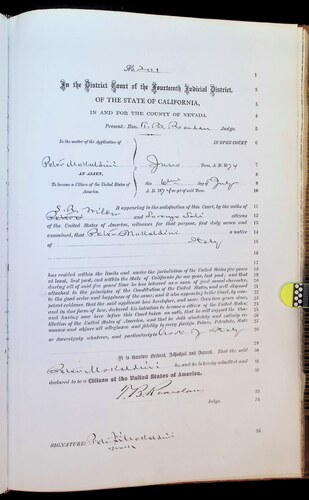 In the District Court of the Fourteenth Judicial District,
OF THE STATE OF CALIFORNIA,
IN AND FOR THE COUNTY OF NEVADA.
Present: Hon. T. B. Reardan Judge.
In the matter of the Application of
IN OPEN COURT
Peter Mollaldini
June Term, A. D. 187
AN ALIEN,
To become a Citizen of the United States of America.
this 6th of July
A. D. 187 , as yet of said Term.
It appearing to the satisfaction of this Court, by the oaths of
S. R. Wilder and Lorenzo citizens
of the United States of America, witnesses for that purpose, first duly sworn and
examined, that Peter Mollaldini a native
of Italy
has resided within the limits and under the jurisdiction of the United States five years
at least, last past, and within the State of California for one year, last past; and that
during all of said five years' time he has behaved as a man of good moral character,
attached to the principles of the Constitution of the United States, and well disposed
to the good order and happiness of the same; and it also appearing to the Court, by competent
evidence, that the said applicant has heretofore, and more than two years since,
and in due form of law, declared his intention to become a citizen of the United States,
and having now here before this Court taken an oath, that he will support the Constitution
of the United States of America, and that he doth absolutely and entirely renounce
and abjure all allegiance and fidelity to every foreign Prince, Potentate, State
or Sovereignty whatever, and particularly to of Italy
It is therefore Ordered, Adjudged and Decreed, That the said
Peter Mollaldini be, and he is hereby admitted and
declared to be a Citizen of the United States of America.
T. B. Reardan
Judge.
SIGNATURE: Peter Mollaldini
mark